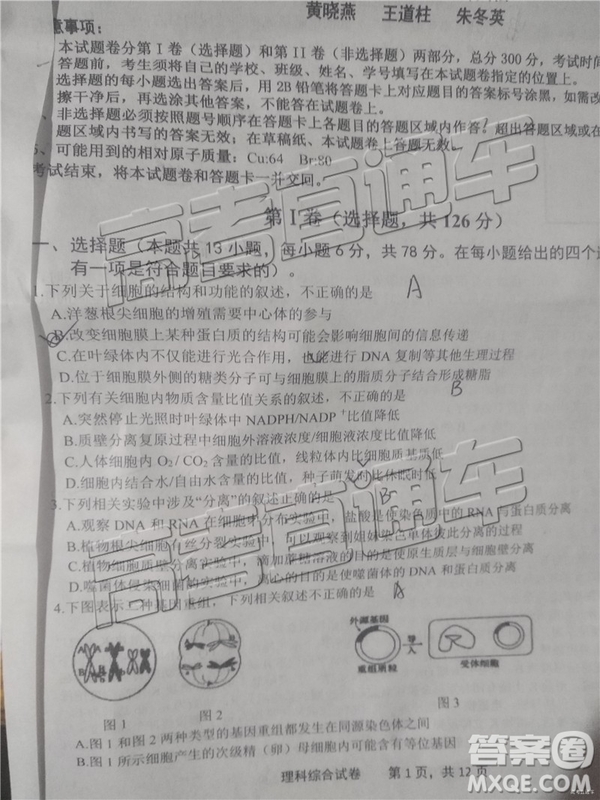 黄晓燕 王道柱 朱冬英
意事项：
本试题卷分第 I 卷（选择题）和第 II 卷（非选择题）两部分，总分 300 分，考试时间
答题前，考生须将自己的学校、班级、姓名、学号填写在本试题卷指定的位置上。
选择题的每小题选出答案后，用 2B 铅笔将答题卡上对应题目的答案标号涂黑，如需改
擦干净后，再选涂其他答案，不能答在试题卷上。
非选择题必须按照题号顺序在答题卡上各题目的答题区域内作答。超出答题区域或在
题区域内书写的答案无效；在草稿纸、本试题卷上答题无效。
5、可能用到的相对原子质量：Cu:64 Br:80
考试结束，将本试题卷和答题卡一并交回。
第 I 卷（选择题，共 126 分）
一、选择题（本题共 13 小题，每小题 6 分，共 78 分。在每小题给出的四个选
有一项是符合题目要求的）。
1.下列关于细胞的结构和功能的叙述，不正确的是 A
A.洋葱根尖细胞的增殖需要中心体的参与
B.改变细胞膜上某种蛋白质的结构可能会影响细胞间的信息传递
C.在叶绿体内不仅能进行光合作用，也能进行 DNA 复制等其他生理过程
D.位于细胞膜外侧的糖类分子可与细胞膜上的脂质分子结合形成糖脂
2.下列有关细胞内物质含量比值关系的叙述，不正确的是 B
A.突然停止光照时叶绿体中 NADPH/NADP⁺比值降低
B.质壁分离复原过程中细胞外液浓度/细胞液浓度比值降低
C.人体细胞内 O₂/CO₂含量的比值，线粒体内比细胞质基质低
D.细胞内结合水/自由水的比值，种子萌发时比休眠时低
3.下列相关实验中涉及“分离”的叙述正确的是 B
A.观察 DNA 和 RNA 在细胞中分布实验中，盐酸是使染色质中的 DNA 与蛋白质分离
B.植物根尖细胞有丝分裂实验中，可以观察到姐妹染色单体彼此分离的过程
C.植物细胞质壁分离实验中，滴加蔗糖溶液的目的是使原生质层与细胞壁分离
D.噬菌体侵染细菌的实验中，离心的目的是使噬菌体的 DNA 和蛋白质分离
4.下图表示三种基因重组，下列相关叙述不正确的是 A
外源基因
导入
重组质粒
受体细胞
图 1
图 2
图 3
A.图 1 和图 2 两种类型的基因重组都发生在同源染色体之间
B.图 1 所示细胞产生的次级精（卵）母细胞内可能含有等位基因
理科综合试卷 第 1 页，共 12 页
高考直通车
高考直通车
答案圈
MXQE.COM